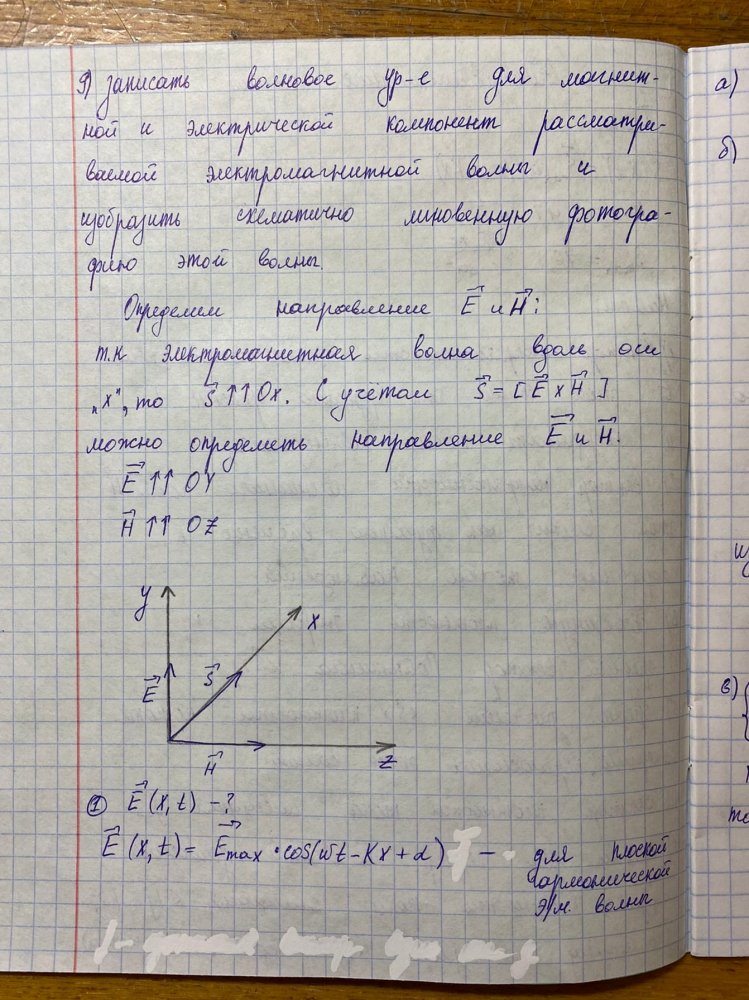 9) записать волновое ур-е для магнит-
ной и электрической компонент рассматри-
ваемой электромагнитной волны и
изобразить схематично мгновенную фотогра-
фию этой волны.
Определим направление E⃗ и H⃗:
т.к электромагнитная волна вдоль оси
„x", то S⃗ ↑↑ Ox. С учётом S⃗ = [E⃗ x H⃗]
можно определить направление E⃗ и H⃗.
E⃗ ↑↑ OY
H⃗ ↑↑ OZ
y
x
E⃗
S⃗
H⃗
z
① E⃗(x,t) - ?
E⃗(x,t) = E⃗max · cos(ωt - Kx + α) — для плоской
гармонической
э/м. волны
а)
б)
в)